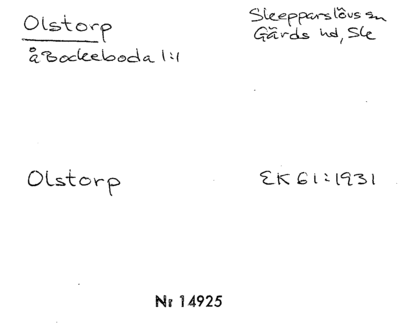 Olstorp
Skepparslövs sn
å Bockeboda 1:1
Gärds hd, Sk
Olstorp
EK 61:1931
Nr 14925